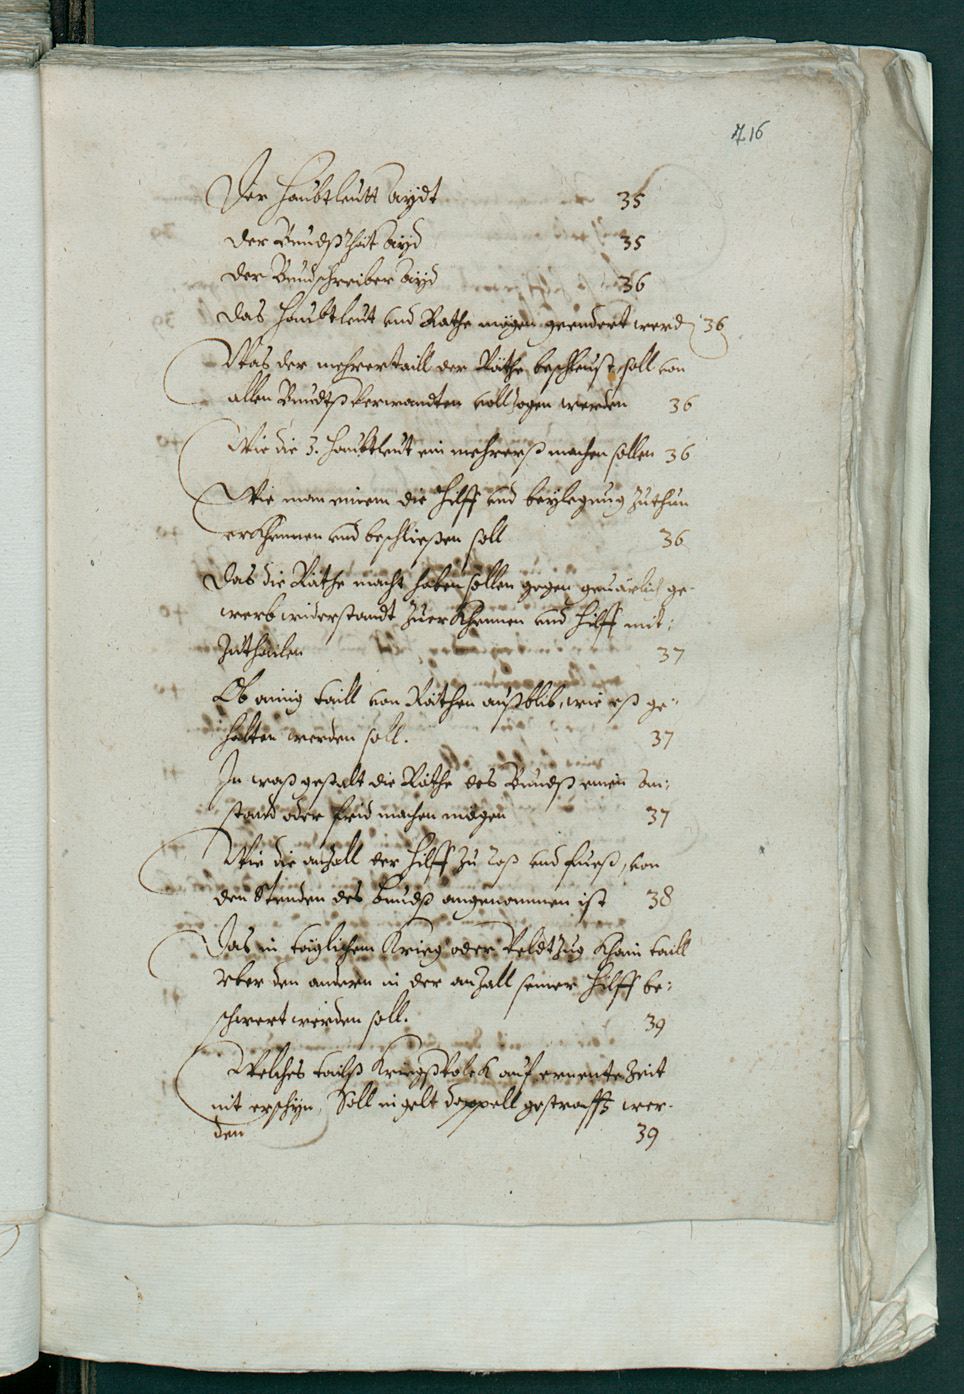 716
Der Haubtleutt Aydt 35
Der Bundßräht Ayd 35
Der Bundschreiber Ayd 36
Das Haubtleut vnd Räthe mögen geendert werd 36
Was der mehrertaill der Räthe beschleust, soll von
allen Bundtßverwandten volltzogen werden 36
Wie die 3. Haubtleut ein mehrerß machen sollen 36
Wie man einem die Hilff vnd beylegung zuthun
erkhennen vnd beschließen soll 36
Das die Räthe macht haben sollen gegen geuärlich ge-
werb widerstandt zuerkhennen vnd Hilff mit-
zuthailen 37
Ob ainig taill von Räthen außblib, wie eß ge-
halten werden soll. 37
In waß gestalt die Räthe des Bundß einen An-
stand oder frid machen mögen 37
Wie die anzall der Hilff zu Roß vnd fueß, von
den Stenden des Bundß angenommen ist 38
Das in täglichem Krieg oder Veldtzug khain taill
vber den andern in der anzall seiner Hilff be-
schwert werden soll. 39
Welches tailß Kriegßvolck auf ernente Zeit
nit erschin, Soll in gelt doppell gestrafft wer-
den 39